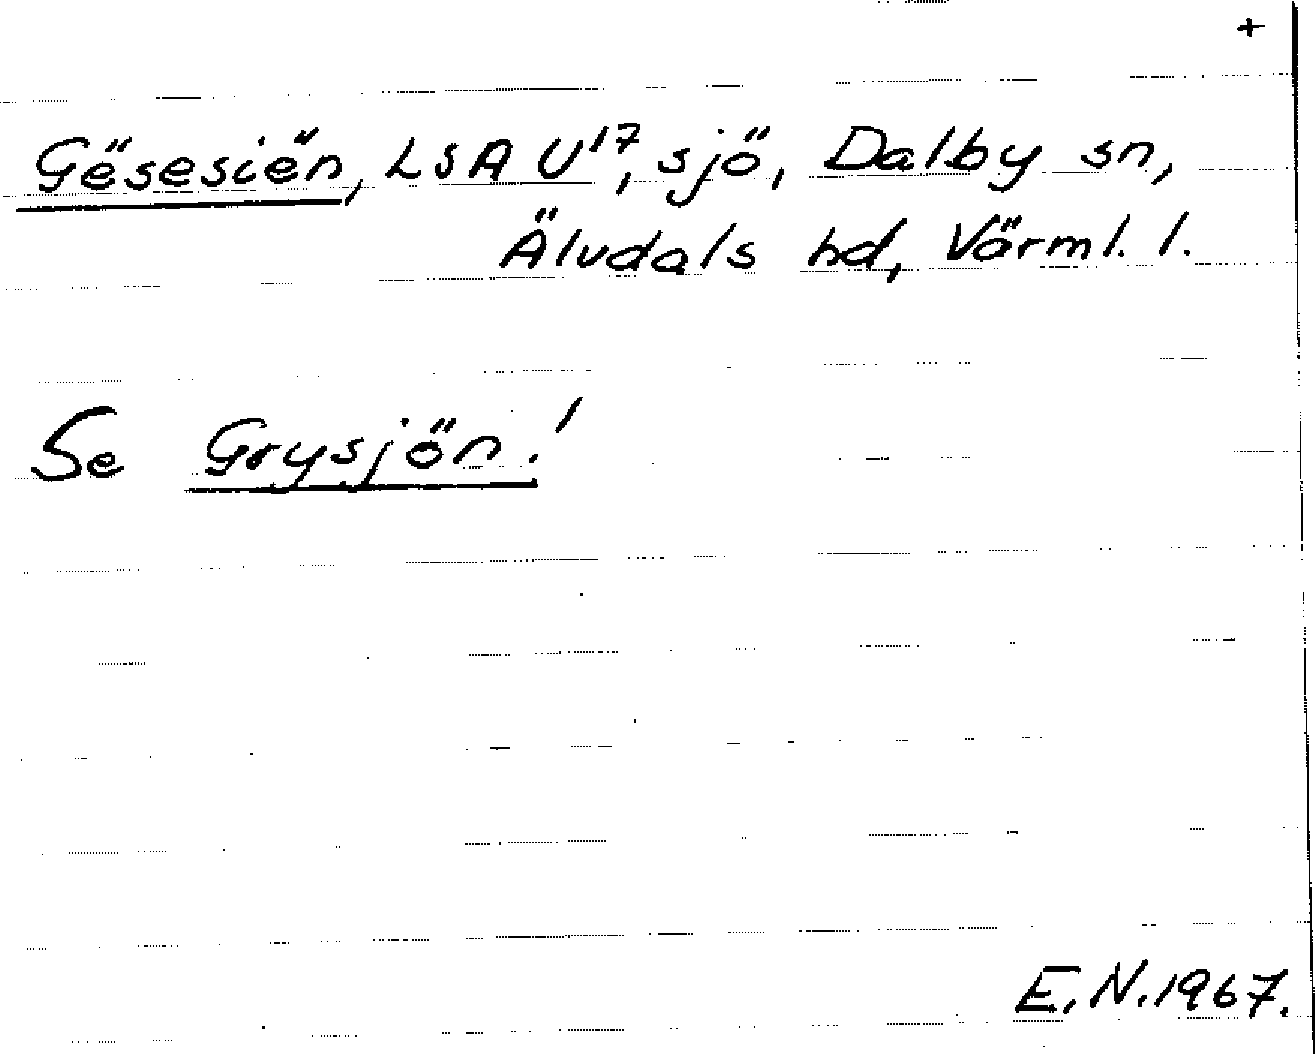 +
Gësesiën, LSA U¹⁷, sjö, Dalby sn,
Älvdals hd, Värml. l.
Se Grysjön!
E.N. 1967.